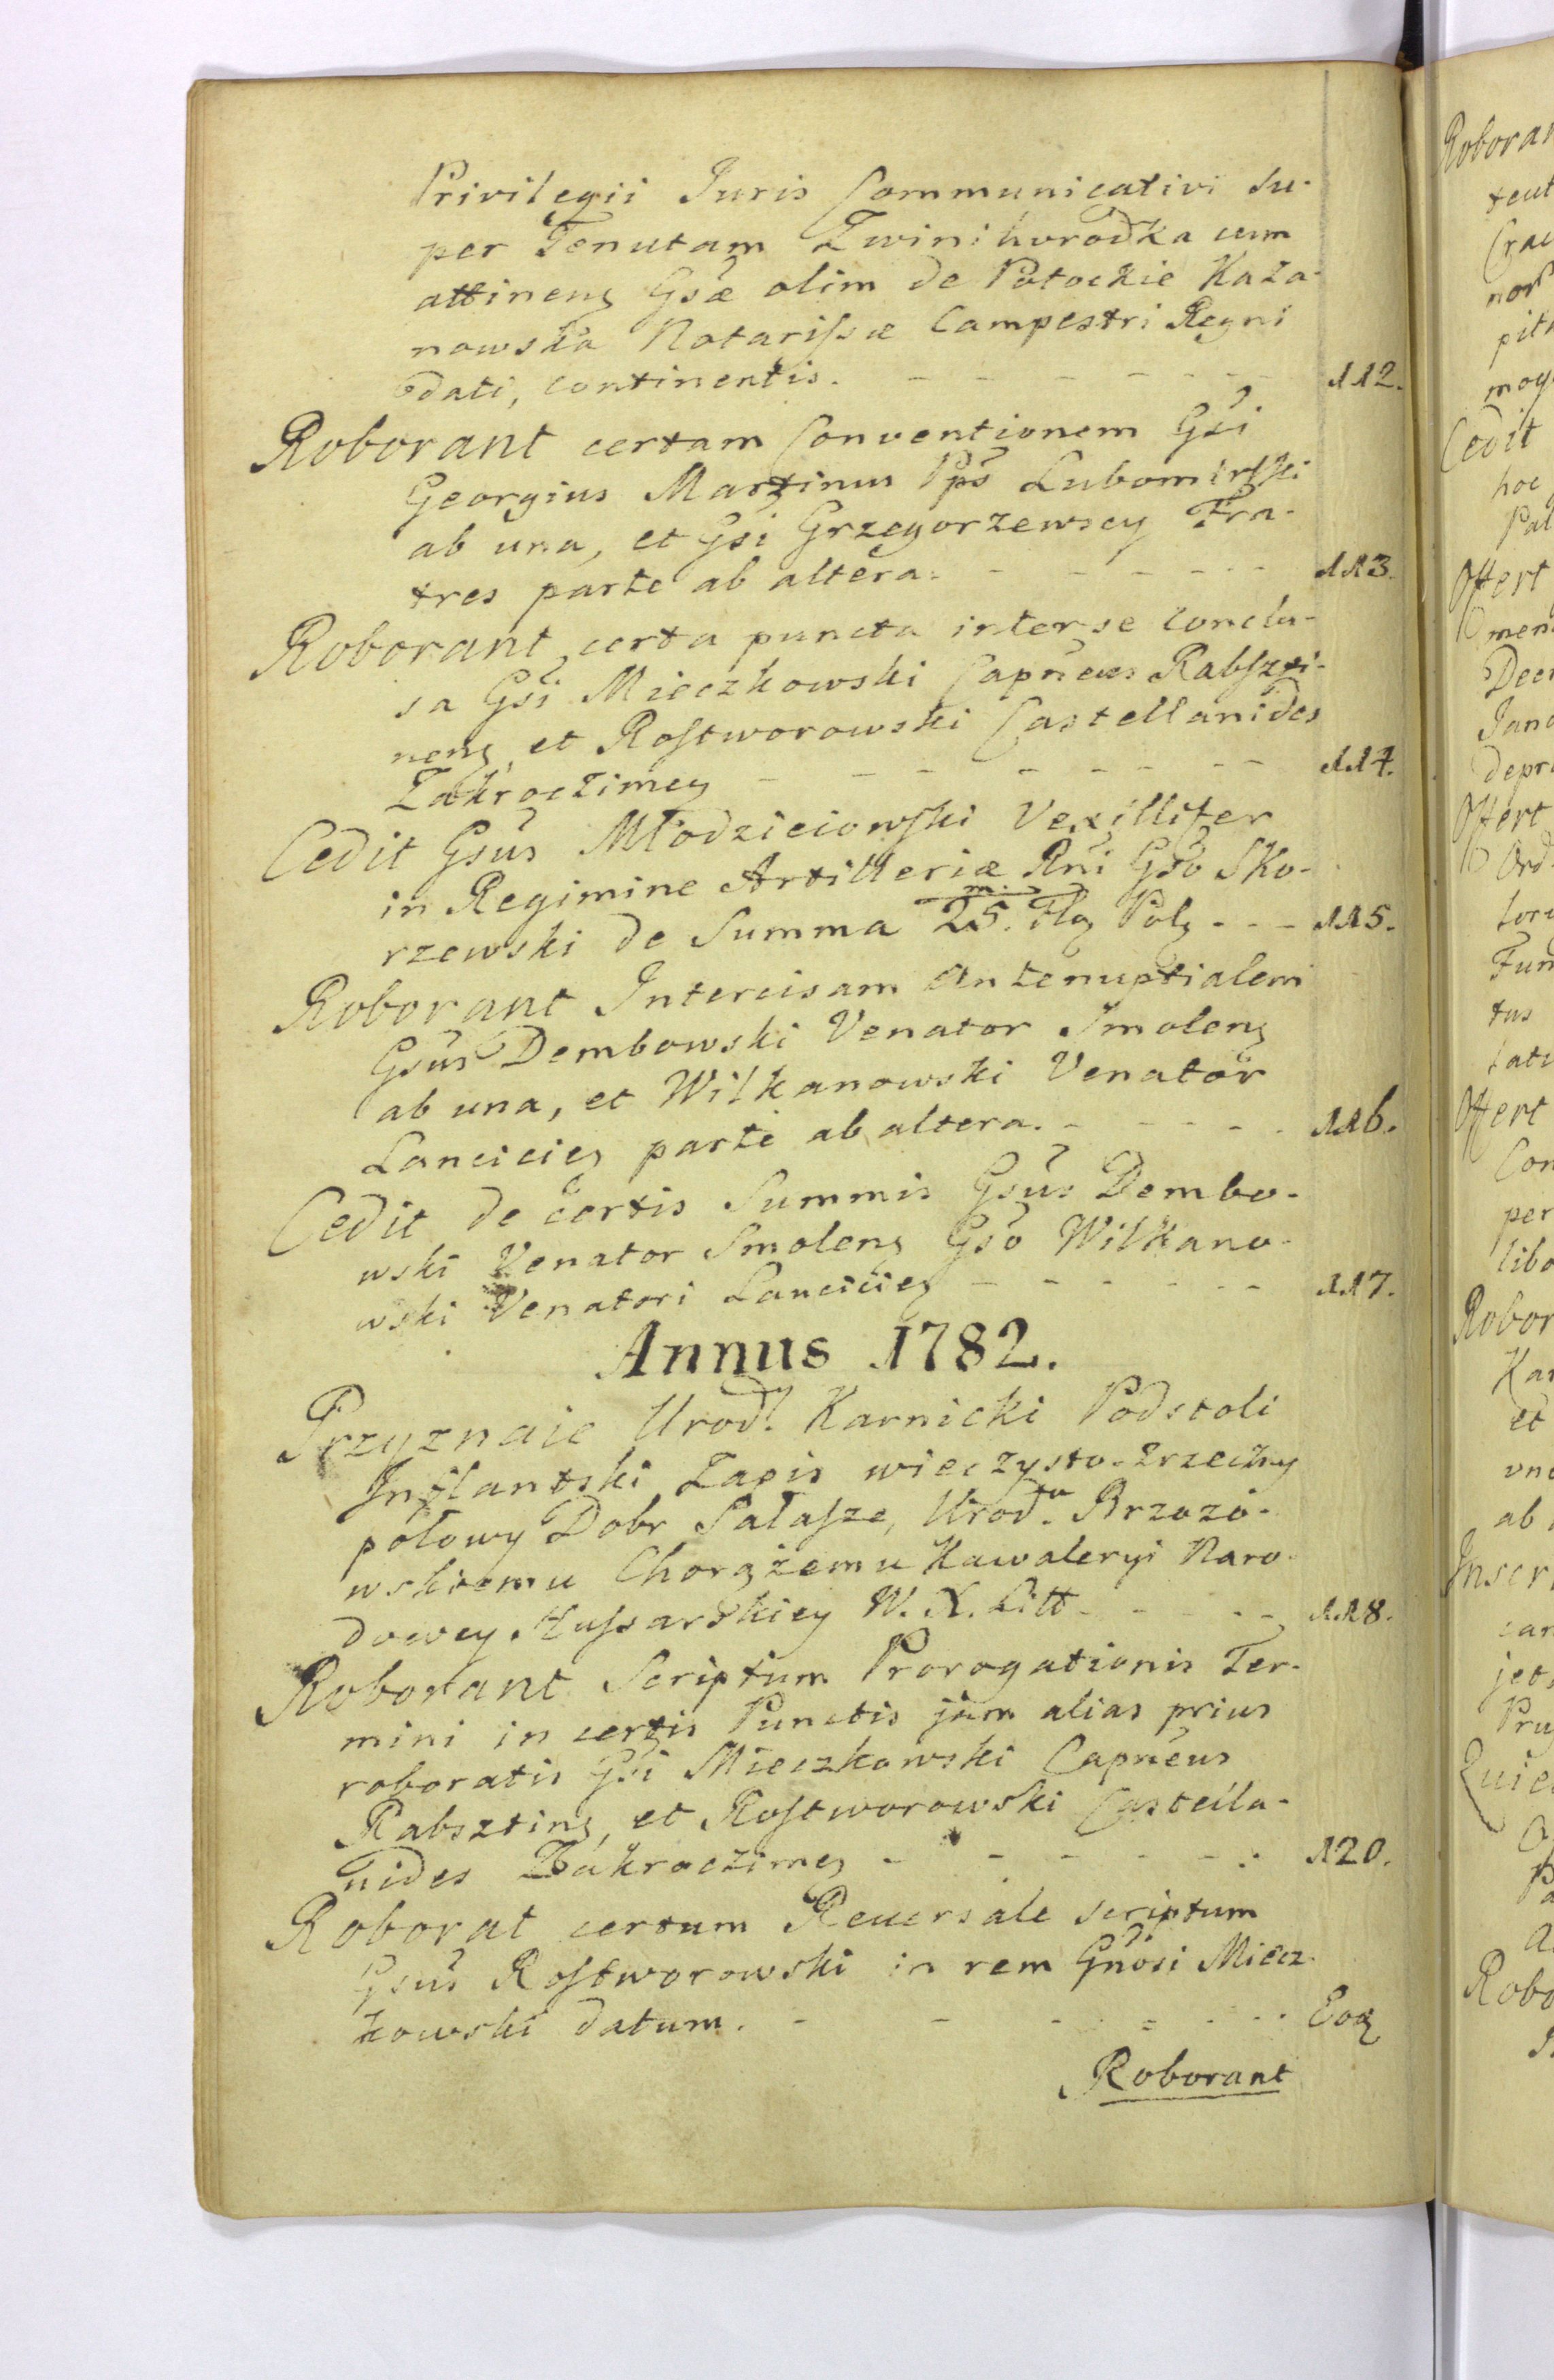 Privilegii Juris Communicativi Su-
per Tenutam Zwinihorodka cum
attineng Gsæ olim de Potockie Kaza-
nowska Notarissæ Campestri Regni
dati, continentis. - - - - - - - 112.
Roborant certam Conventionem Gsi
Georgius Martinus Pps Lubomirski
ab una, et Gsi Grzegorzewscy Fra-
tres parte ab altera. - - - - - - 113.
Roborant certa puncta inter se conclu-
sa Gsi Mieczkowski Capneus Rabszti-
neng, et Rostworowski Castellanides
Zakroczimeg - - - - - - - - 114.
Cedit Gsus Młodzieiowski Vexillifer
in Regimine Artilleriæ Rni Gso Sko-
rzewski de Summa 25.m. Flg Polg - - - 115.
Roborant Intercisam Antenuptialem
Gsus Dembowski Venator Smoleng
ab una, et Wilkanowski Venator
Lancicieg parte ab altera. - - - - - 116.
Cedit de certis Summis Gsus Dembo-
wski Venator Smoleng Gso Wilkano-
wski Venatori Lancicieg - - - - - - 117.
Annus 1782.
Przyznaie Urodl. Karnicki Podstoli
Inflantski Zapis wieczysto-zrzeczny
połowy Dobr Sałasze, Urod.mu Brzozo-
wskiemu Chorążemu Kawaleryi Naro-
dowey Hussarskiey W. X. Litt - - - - - 118.
Roborant Scriptum Prorogationis Ter-
mini in certis Punctis jam alias prius
roboratis Gsi Mieczkowski Capneus
Rabszting, et Rostworowski Castella-
nides Zakroczimeg - - - - - - 120.
Roborat certum Reversale scriptum
Gsus Rostworowski in rem Gnosi Miecz-
kowski datum. - - - - - - - Eoq
Roborant